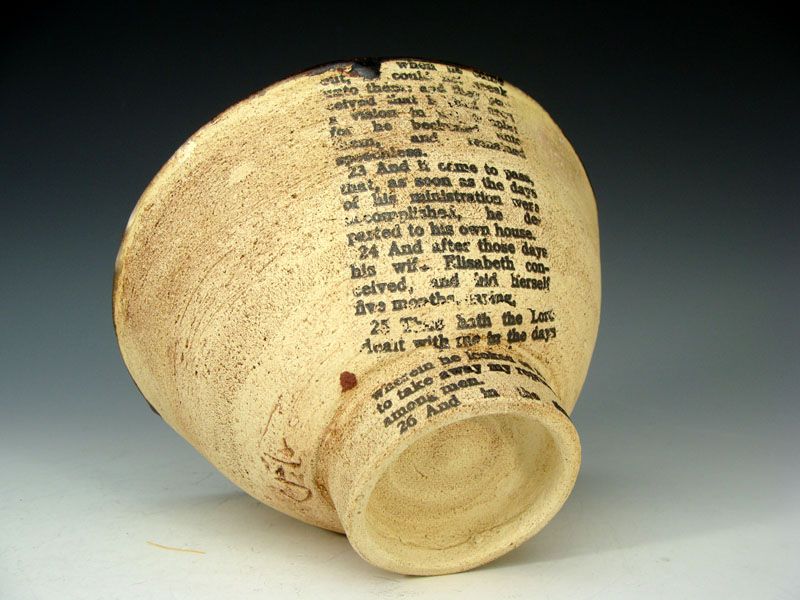 when he came
out, he could not speak
unto them: and they per-
ceived that he had seen
a vision in
for he beckoned unto
them, and remained
speechless.
23 And it came to pass,
that, as soon as the days
of his ministration were
accomplished, he de-
parted to his own house.
24 And after those days
his wife Elisabeth con-
ceived, and hid herself
five months, saying,
25 Thus hath the Lord
dealt with me in the days
wherein he looked
to take away my
among men.
26 And in the